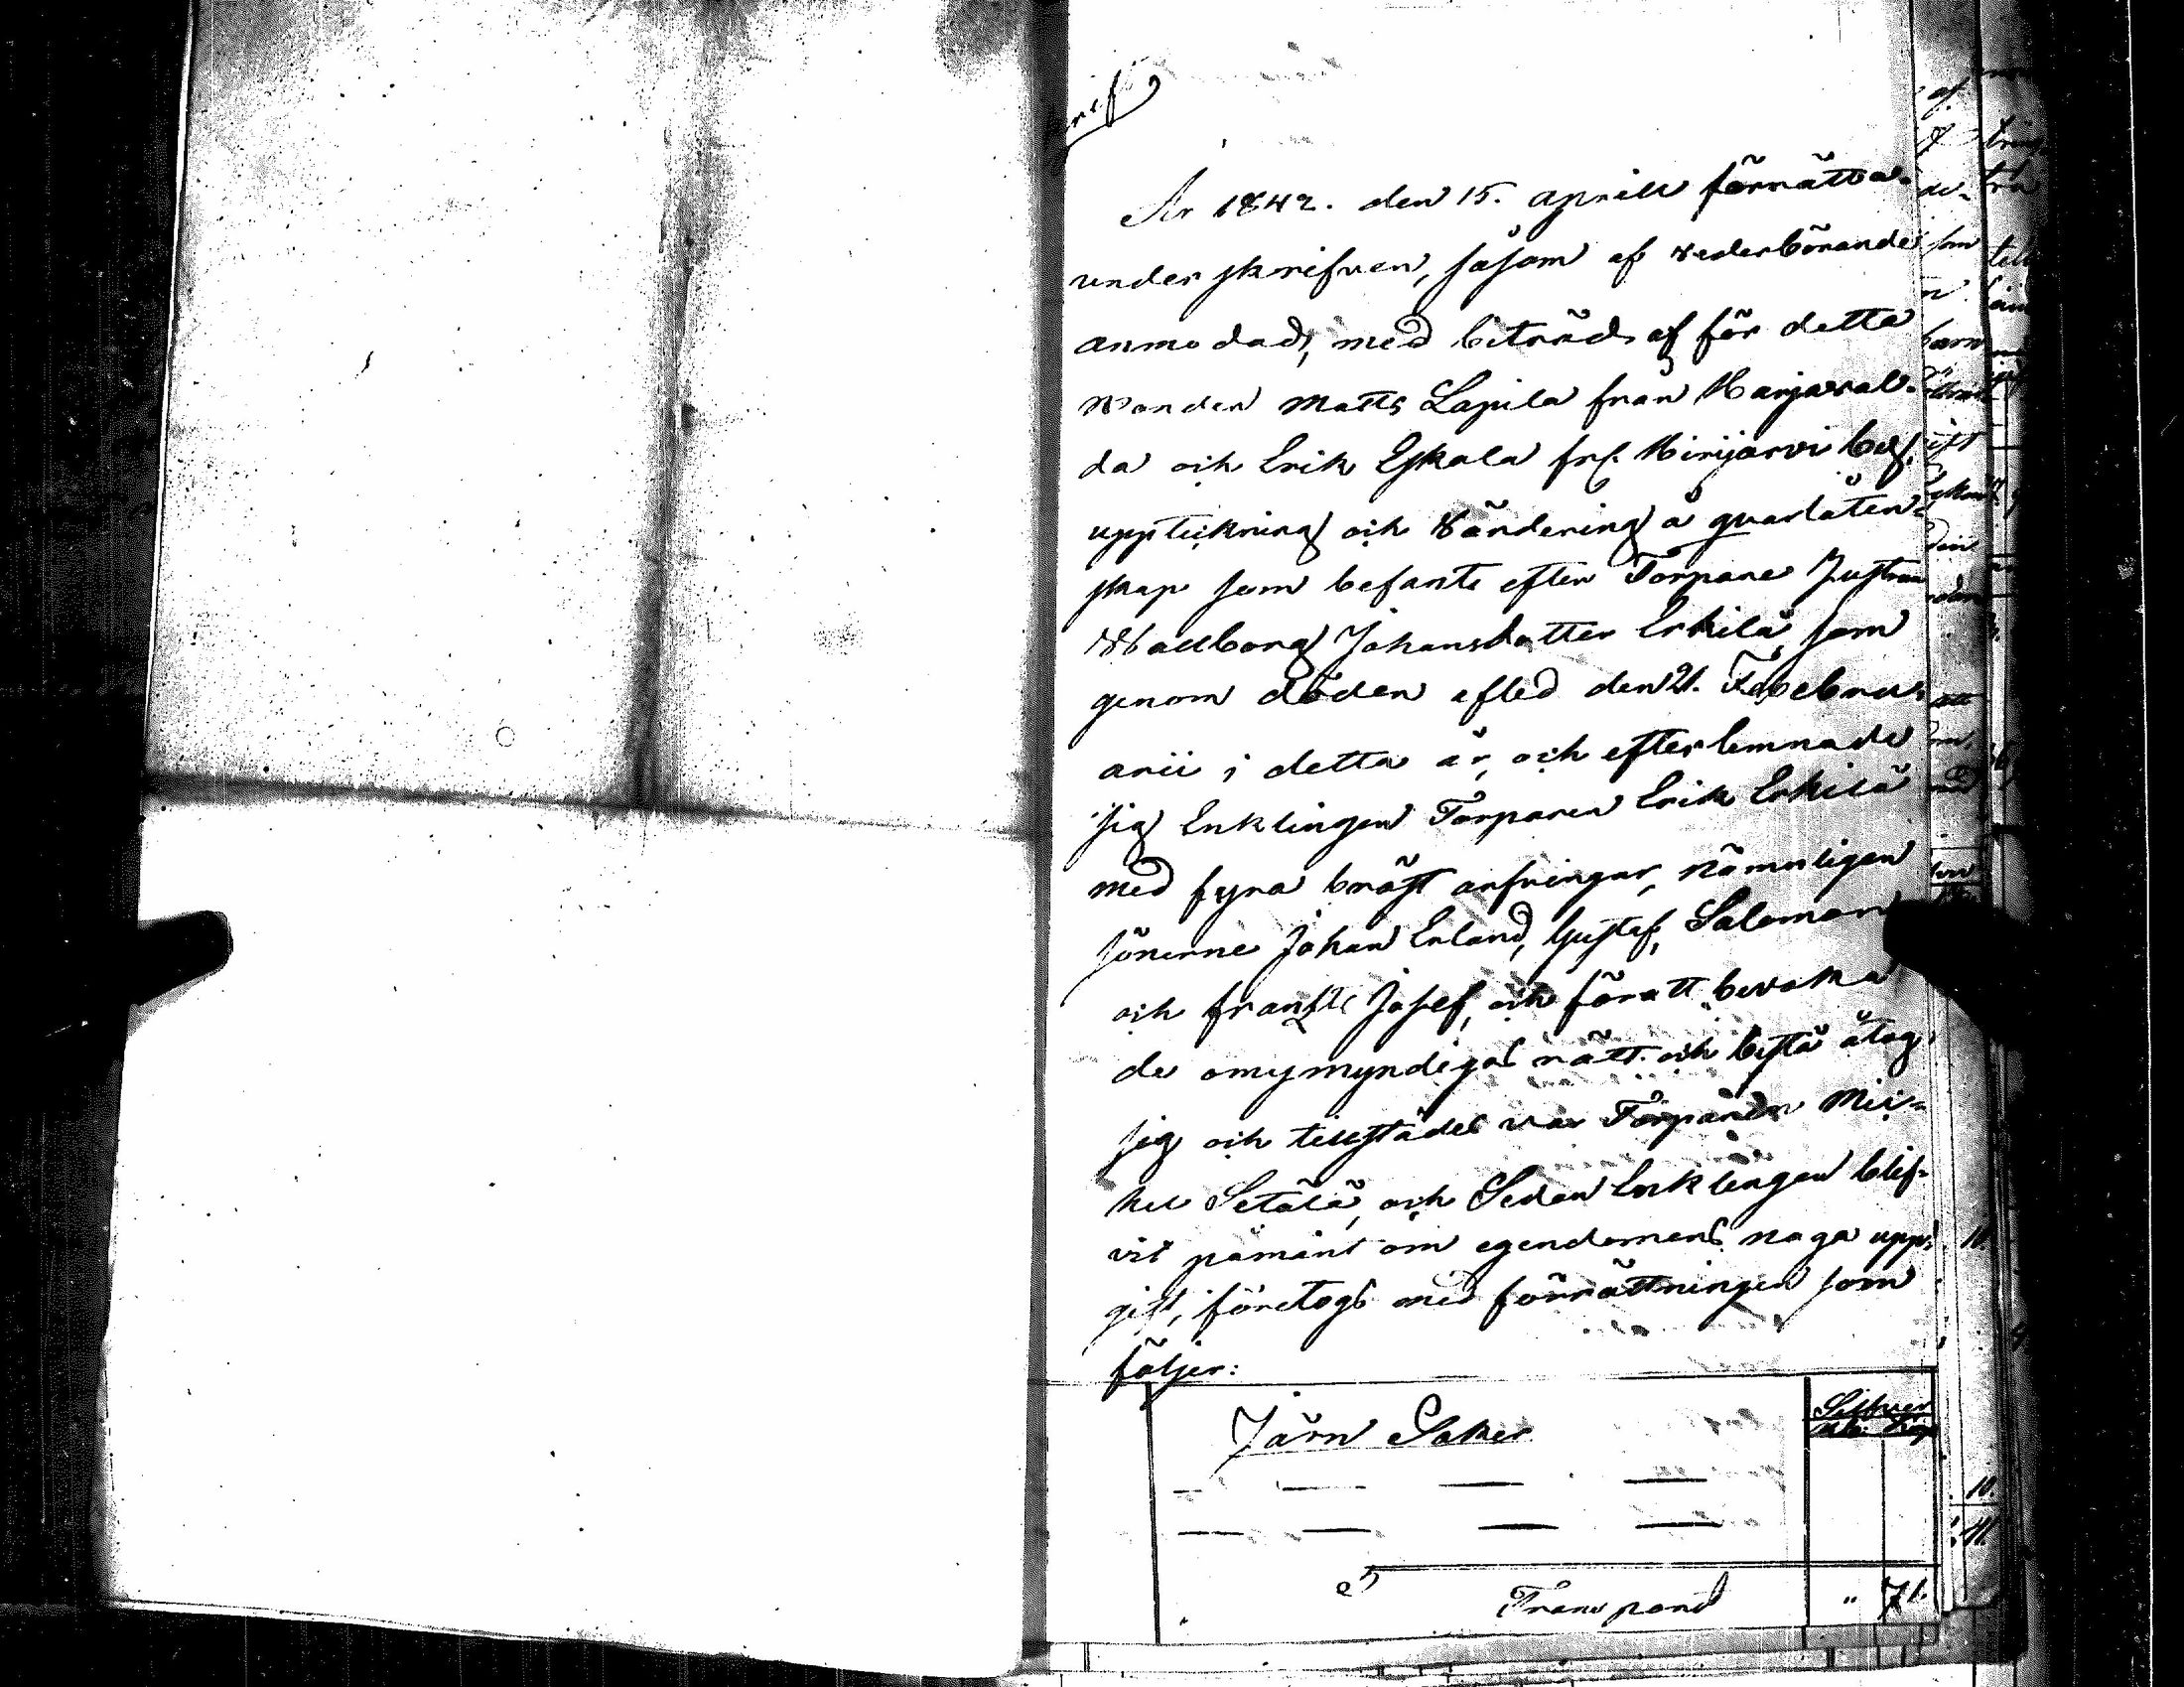 År 1842. den 15. Aprill förrätta-
underskrifven, såsom af vederbörande
anmodad, med biträde af för detta
Wanden Matts Lapila från Harjaval-
da och Erik Eskala frs. Hirijärvi by,
uppteckning och värdering å qvarlåten-
skap som befants efter Torpare Hustrun
Wallborg Johansdotter Erkilä, som
genom döden afled den 21. Febru-
arii i detta år, och efterlemnade
sig Enklingen Torparen Erik Erkilä
med fyra bröst arfvingar, nämnligen
sönerne Johan Erland, Gustaf, Salomon
och Frantz Josef, och för att bevaka
de omymyndigas rätt och bästa åtog
sig och tillstädes var Torparen Mic-
kel Setälä, och Sedan Enklingen blif-
vit påmint om egendomens noga upp-
gift, företogs med förrättningen som
följer:
Järn Saker
Silfver
Rub. Kop
Transport " 71.